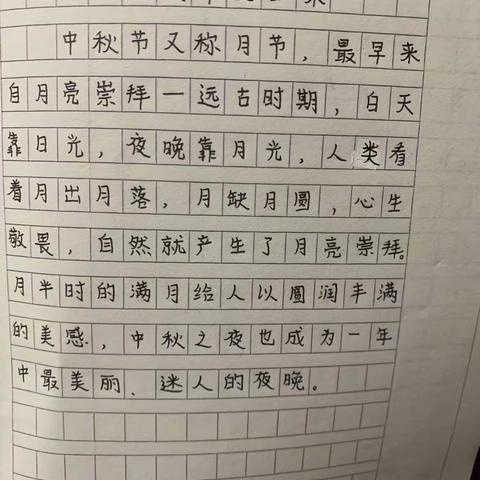 中秋节又称月节，最早来
自月亮崇拜一远古时期，白天
靠日光，夜晚靠月光，人类看
着月出月落，月缺月圆，心生
敬畏，自然就产生了月亮崇拜。
月半时的满月给人以圆润丰满
的美感，中秋之夜也成为一年
中最美丽、迷人的夜晚。